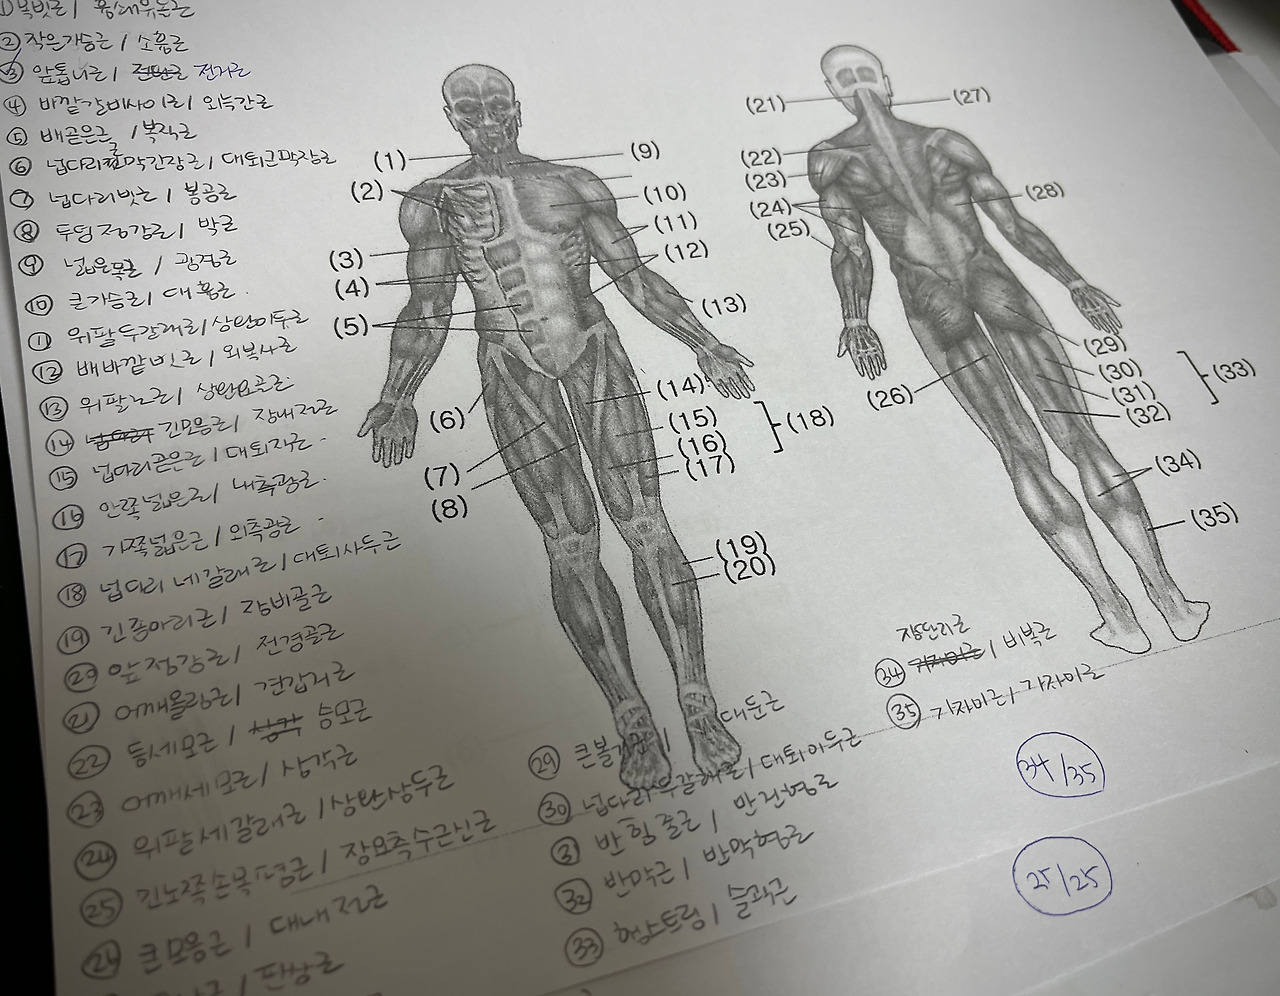 ① 목빗근 / 흉쇄유돌근
② 작은가슴근 / 소흉근
③ 앞톱니근 / 전거근
④ 바깥갈비사이근 / 외늑간근
⑤ 배곧은근 / 복직근
⑥ 넙다리근막긴장근 / 대퇴근막장근
⑦ 넙다리빗근 / 봉공근
⑧ 두덩정강근 / 박근
⑨ 넓은목근 / 광경근
⑩ 큰가슴근 / 대흉근
⑪ 위팔두갈래근 / 상완이두근
⑫ 배바깥빗근 / 외복사근
⑬ 위팔노근 / 상완요골근
⑭ 긴모음근 / 장내전근
⑮ 넙다리곧은근 / 대퇴직근
⑯ 안쪽넓은근 / 내측광근
⑰ 가쪽넓은근 / 외측광근
⑱ 넙다리 네갈래근 / 대퇴사두근
⑲ 긴종아리근 / 장비골근
⑳ 앞정강근 / 전경골근
㉑ 어깨올림근 / 견갑거근
㉒ 등세모근 / 승모근
㉓ 어깨세모근 / 삼각근
㉔ 위팔세갈래근 / 상완삼두근
㉕ 긴노쪽손목폄근 / 장요측수근신근
㉖ 큰모음근 / 대내전근
판상근
(1)
(2)
(3)
(4)
(5)
(6)
(7)
(8)
(9)
(10)
(11)
(12)
(13)
(14)
(15)
(16)
(17)
(18)
(19)
(20)
(21)
(22)
(23)
(24)
(25)
(26)
(27)
(28)
(29)
(30)
(31)
(32)
(33)
(34)
(35)
㉙ 큰볼기근 / 대둔근
㉚ 넙다리 두갈래근 / 대퇴이두근
㉛ 반힘줄근 / 반건형근
㉜ 반막근 / 반막형근
㉝ 햄스트링 / 슬괵근
㉞ 장딴지근 / 비복근
㉟ 가자미근 / 가자미근
34/35
25/25